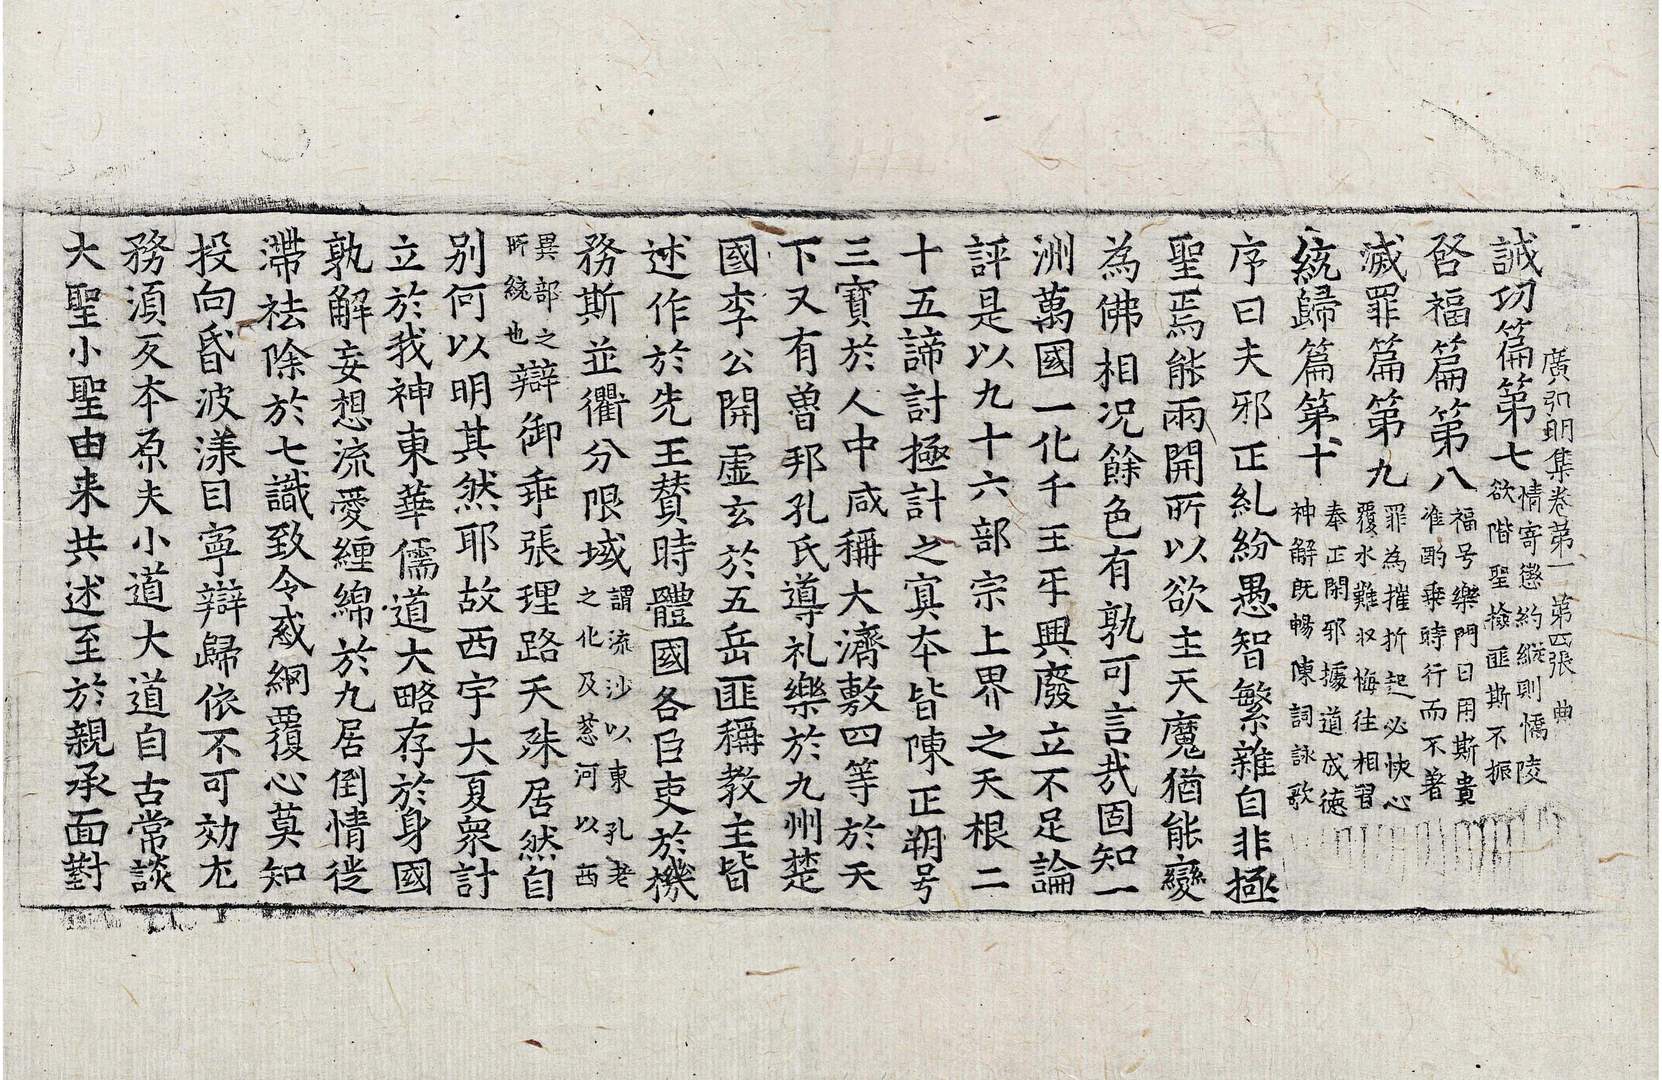 廣弘明集卷第一 第四張 典
誡功篇第七 情寄懲約縱則憍陵欲階聖撿匪斯不振
啓福篇第八 福号樂門日用斯貴准酌乗時行而不著
滅罪篇第九 罪為摧折起必快心覆水難収悔往相習
統歸篇第十 奉正閑邪據道成徳神解既暢陳詞詠歌
序曰夫邪正糺紛愚智繁雜自非極
聖焉能兩開所以欲主天魔猶能變
為佛相况餘色有孰可言㢤固知一
洲萬國一化千王互興廢立不足論
評是以九十六部宗上界之天根二
十五諦討極計之寞本皆陳正朔号
三寶於人中咸稱大濟敷四等於天
下又有魯邦孔氏導礼樂於九州楚
國李公開虚玄於五岳匪稱教主皆
述作於先王賛時體國各臣吏於機
務斯並衢分限域 謂流沙以東孔老之化及葱河以西
異部之所統也 辯御乖張理路天殊居然自
別何以明其然耶故西宇大夏衆計
立於我神東華儒道大略存於身國
孰解妄想流愛纒綿於九居倒情徙
滯袪除於七識致令惑網覆心莫知
投向昏波漾目寧辯歸依不可効尤
務湏反本原夫小道大道自古常談
大聖小聖由来共述至於親承面對